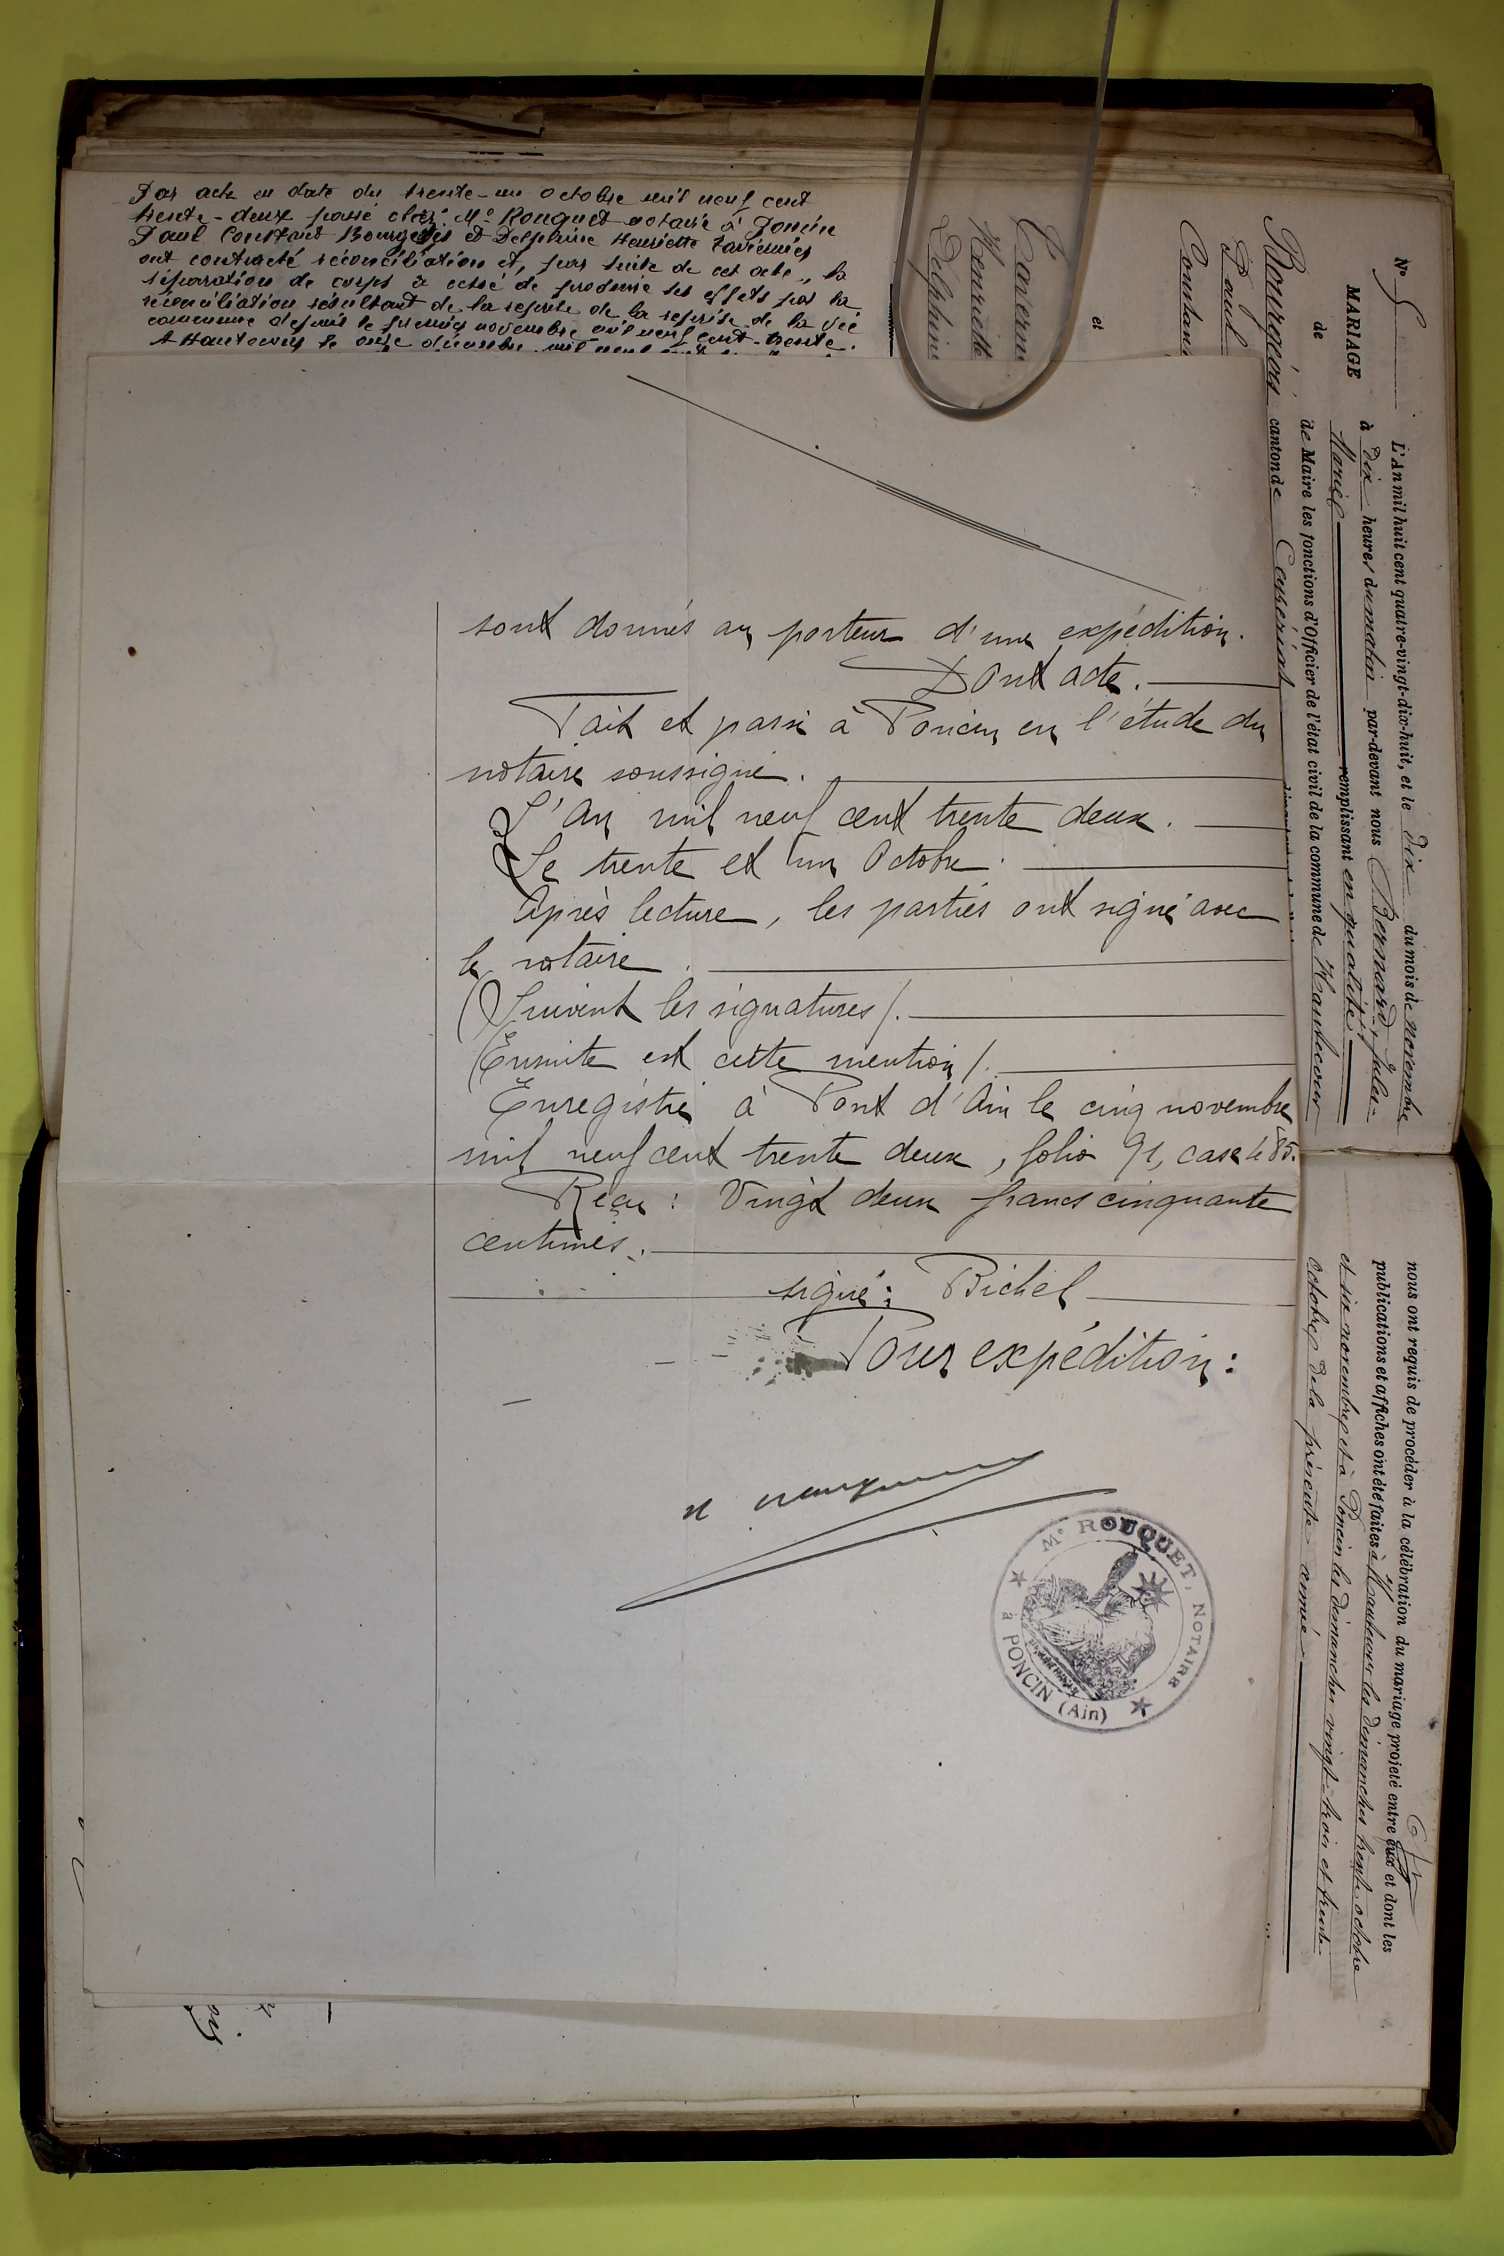 Par acte en date du trente-un octobre mil neuf cent
trente-deux passé chez Me Rouquet notaire à Poncin
Paul Constant Bourgeois et Delphine Henriette Tavernier
ont contracté réconciliation et, par suite de cet acte, la
séparation de corps a cessé de produire ses effets par la
réconciliation résultant de la reprise de la reprise de la vie
commune depuis le premier novembre mil neuf cent-trente.
A Hautecour le onze décembre mil neuf cent
sont donnés au porteur d'une expédition.
Dont acte.
Fait et passé à Poncin en l'étude du
notaire soussigné.
L'An mil neuf cent trente deux.
Le trente et un Octobre.
Après lecture, les parties ont signé avec
le notaire.
(Suivent les signatures).
(Ensuite est cette mention).
Enregistré à Pont d'Ain le cinq novembre
mil neuf cent trente deux, folio 91, case 485.
Reçu : Vingt deux francs cinquante
centimes.
signé : Bichel
Pour expédition :
Me ROUQUET, NOTAIRE
à PONCIN (Ain)
No 5
MARIAGE
de
Bourgeois
Paul
Constant
et
Taverni
Henriette
Delphine
L'An mil huit cent quatre-vingt-dix-huit, et le dix du mois de novembre
à dix heures du matin par-devant nous Bernard, Jules-
Marie remplissant en qualité
de Maire les fonctions d'Officier de l'état civil de la commune de Hautecour
canton de Ceyzériat
nous ont requis de procéder à la célébration du mariage projeté entre eux et dont les
publications et affiches ont été faites à Hautecour les dimanches trente octobre
et six novembre et à Poncin les dimanches vingt-trois et trente
octobre de la présente année